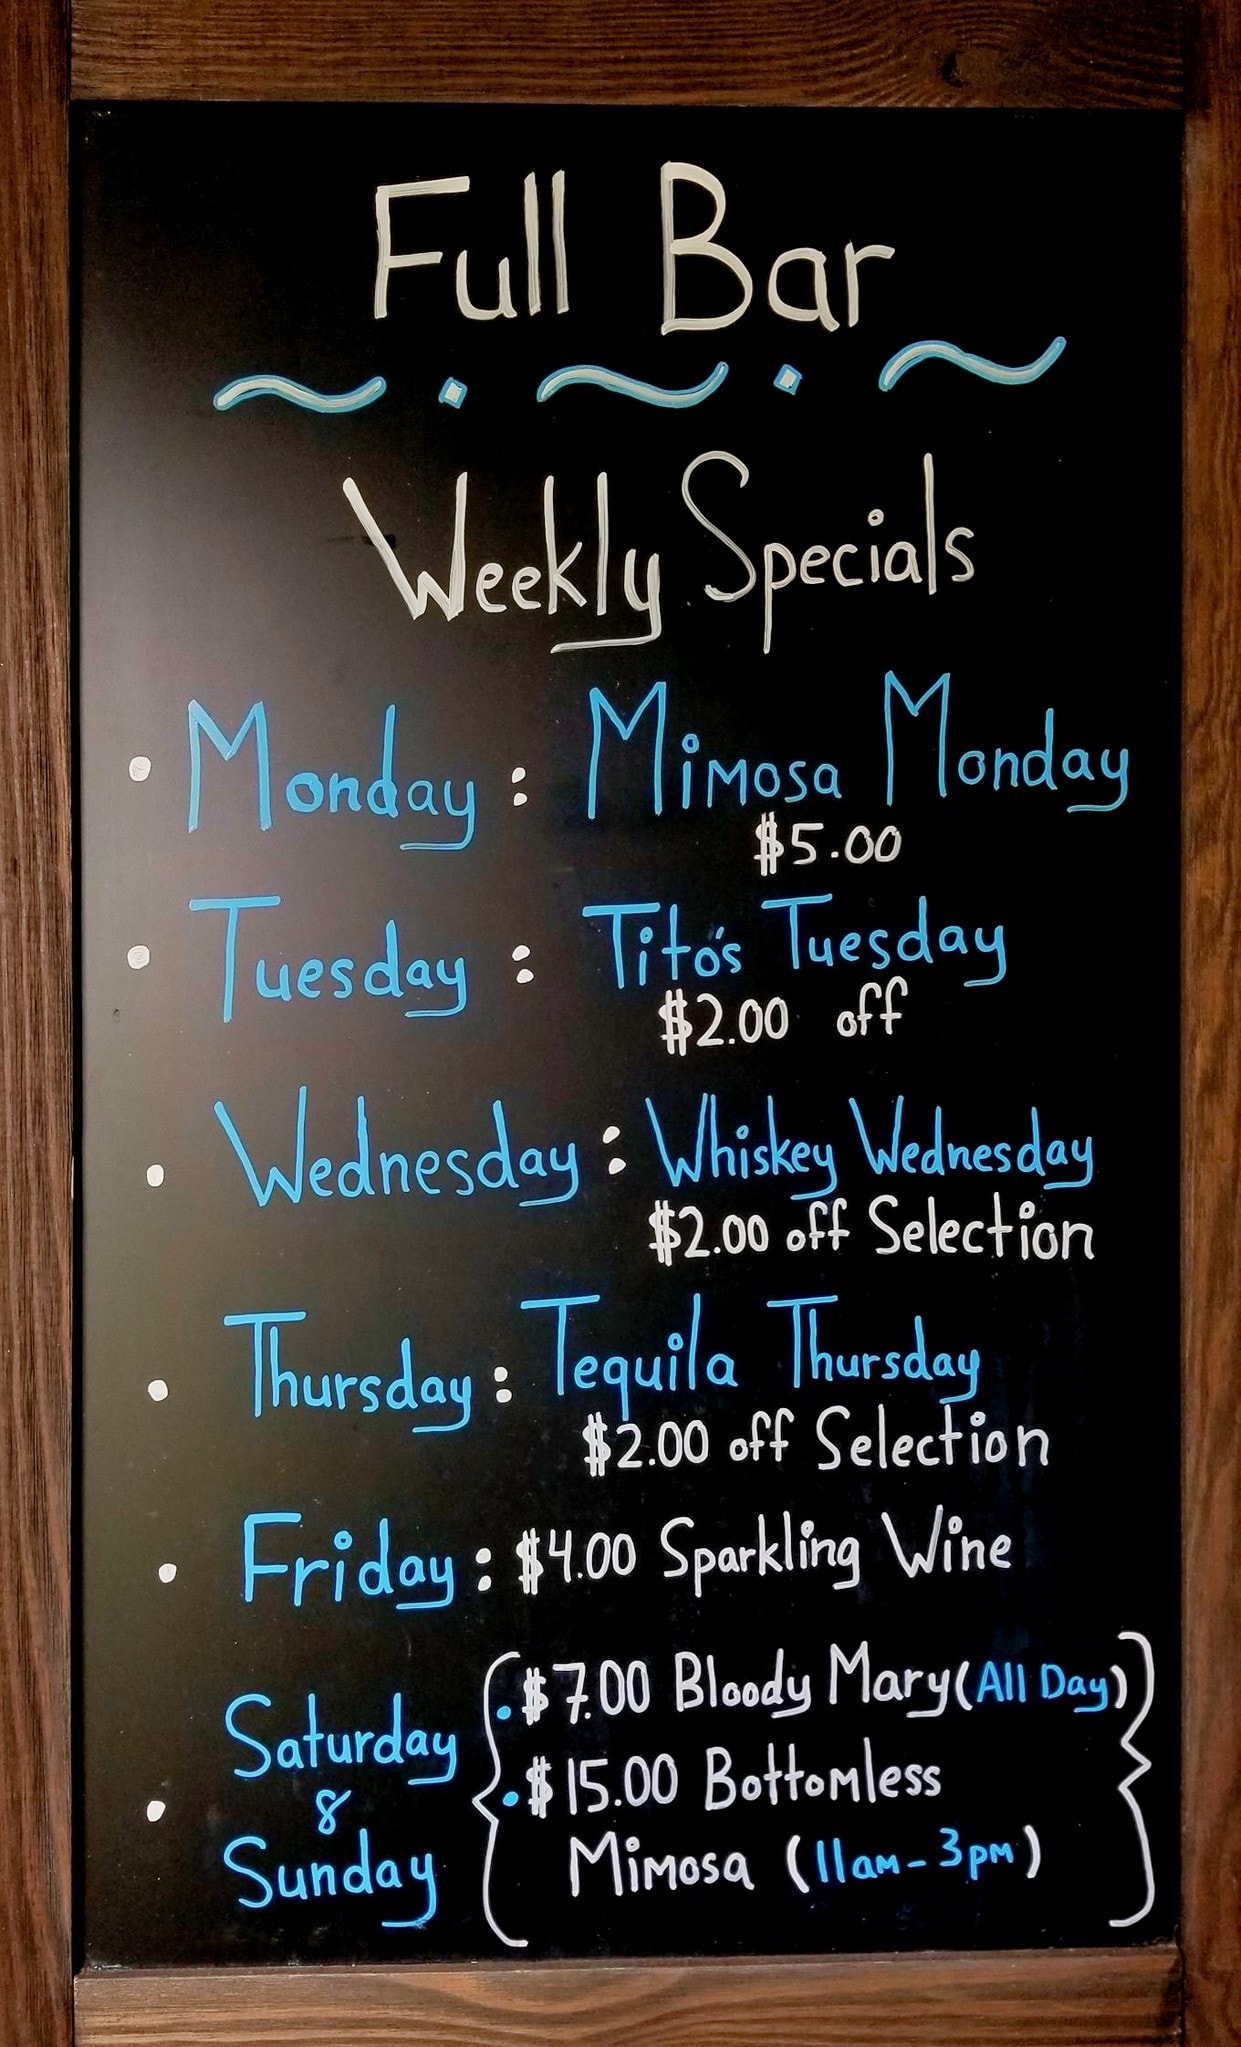 Full Bar
~ · ~ · ~
Weekly Specials
• Monday : Mimosa Monday
$5.00
• Tuesday : Tito's Tuesday
$2.00 off
• Wednesday : Whiskey Wednesday
$2.00 off Selection
• Thursday : Tequila Thursday
$2.00 off Selection
• Friday : $4.00 Sparkling Wine
• Saturday & Sunday
• $7.00 Bloody Mary (All Day)
• $15.00 Bottomless
Mimosa (11am - 3pm)